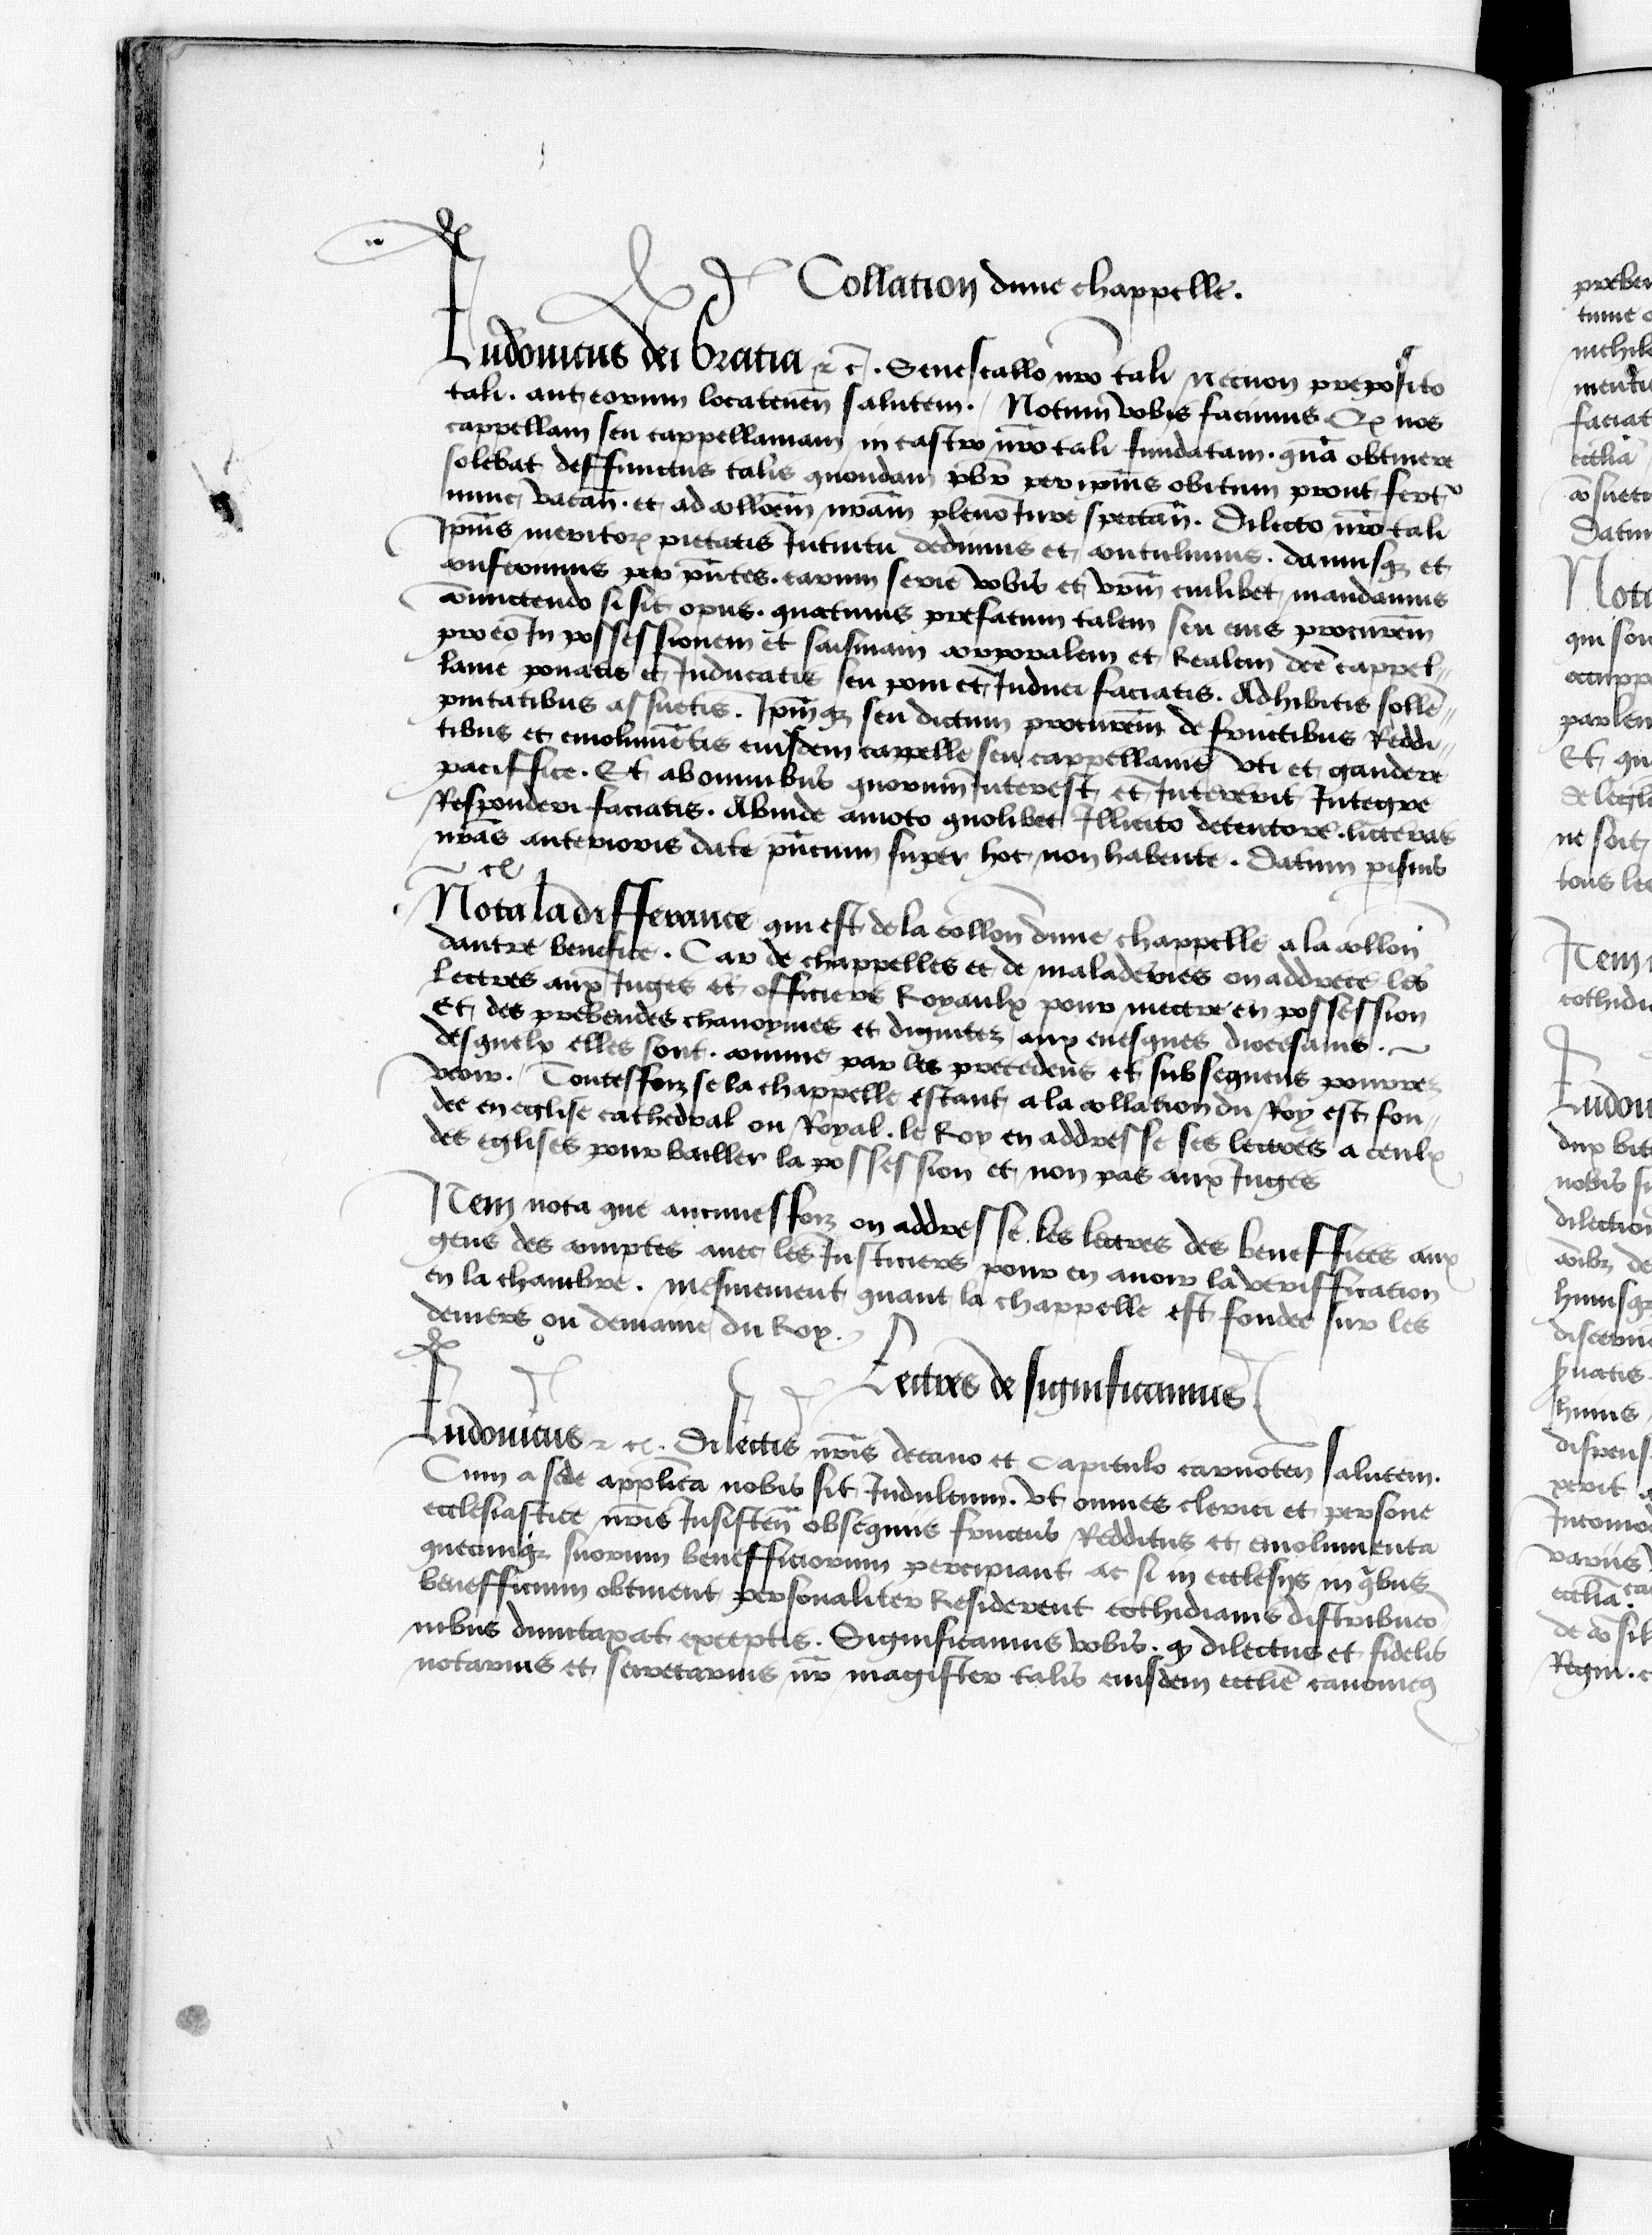 Collation dune chappelle.
Ludouicus dei Gratia ⁊ c̄. Senescallo nr̄o tali Necnon preposito
tali. aut eorum locateneñ salutem. Notum vobis facimus Qꝫ nos
cappellam seu cappellaniam in castro nr̄o tali fundatam. quā obtinere
solebat deffunctus talis quondam pb̄r per ip̄ius obitum prout fert᷑
nunc vacañ. et ad collōem nr̄am pleno Iure spectañ. Dilecto nr̄o tali
Ip̄ius meritoꝝ pietatis Intuitu dedimus et contulimus. damusqꝫ et
conferimus per pñtes. earum serie vobis et vr̄m cuilibet mandamus
cōmictendo si sit opus. quatinus prefatum talem seu eius procur̄em
pro eo In possessionem et saisinam corporalem et Realem dc̄e cappel〃
lanie ponatis et Inducatis seu poni et Induci faciatis. Adhibitis sollē〃
pnitatibus assuetis. Ip̄mqꝫ seu dictum procur̄em de fructibus Reddi〃
tibus et emolumētis eiusdem cappelle seu cappellanie vti et gaudere
paciffice. Et ab omnibus quorum Interest et Intererit Integre
Responderi faciatis. Abinde amoto quolibet Illicito detentore. litteras
nr̄as anterioris date pñcium super hoc non habente. Datum parisius
⁊ c̄
Nota la differance qui est de la collon̄ dune chappelle a la collon̄
dautre benefice. Car de chappelles et de maladeries on addrece les
Lectres aux Iuges et officiers Royaulx pour mectre en possession
Et des prebendes chanoynies et dignitez aux euesques diocesains.
desquelx elles sont. comme par les precedens et subsequens pourrez
veoir. Toutesfoiz se la chappelle estant a la collation du Roy est fon〃
dee en eglise cathedral ou Royal. le Roy en addresse ses lectres a ceulx
des eglises pour bailler la possession et non pas aux Iuges
Item nota que aucunesfoiz on addresse les lectres des beneffices aux
gens des comptes auec les Iusticiers pour en auoir la veriffication
en la chambre. mesmement quant la chappelle est fondee sur les
deniers ou demaine du Roy.
Lectres de significamus
Ludouicus ⁊ c̄. Dilectis nr̄is decano et Capitulo carnoteñ salutem.
Cum a sede applīca nobis sit Indultum. vt omnes clerici et persone
ecclesiastice nr̄is Insisteñ obsequiis fructus Redditus et emolumenta
quecumqꝫ suorum beneffitiorum percipiant ac si in ecclesiis in qͥbus
benefficium obtinent personaliter Residerent cothidianis distribucō
nibus dumtaxat exceptis. Significamus vobis. qꝫ dilectus et fidelis
notarius et secretarius nr̄ magister talis eiusdem eccliē canonicꝰ